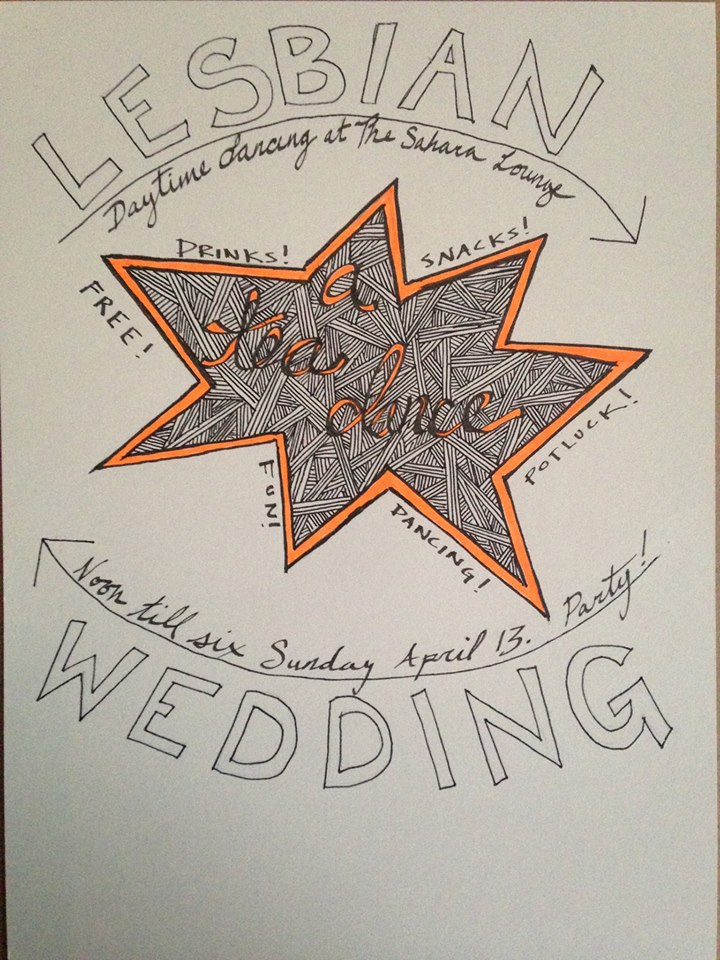 LESBIAN
Daytime dancing at The Sahara Lounge
DRINKS!
SNACKS!
FREE!
a
tea
dance
POTLUCK!
FUN!
DANCING!
Noon till six Sunday April 13. Party!
WEDDING